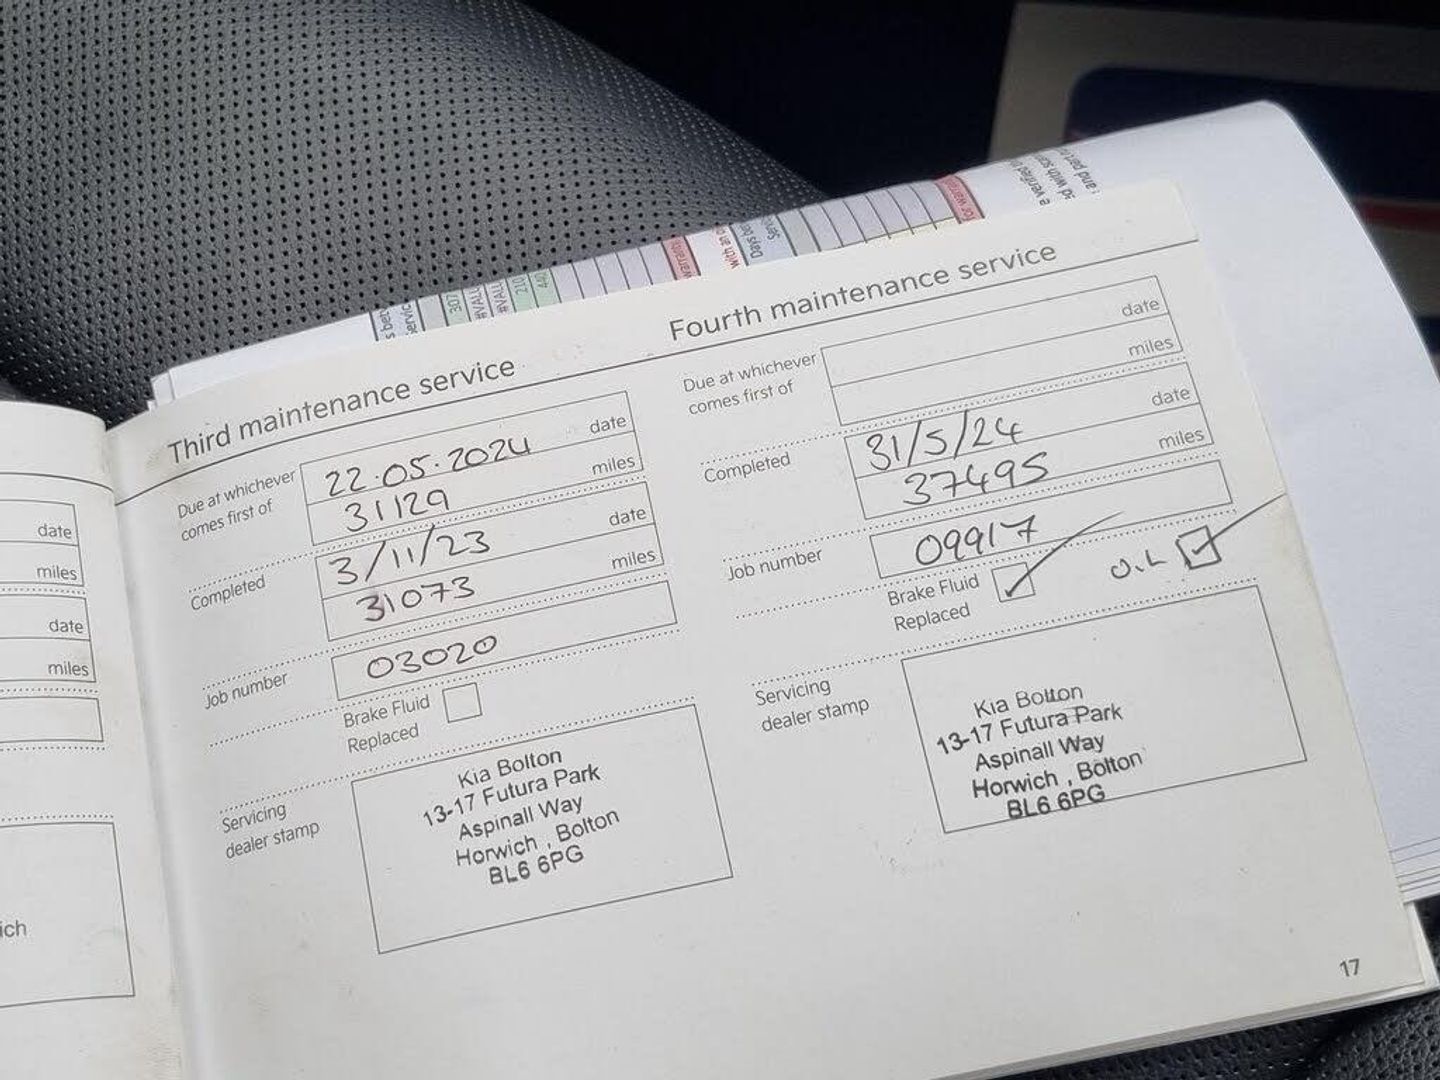 and part
d with scan
e verified
for warran
Serv
Days be
with an o
warranty
440
210
#VALU
#VALU
307
Servic
s bet
date
miles
date
miles
ich
Third maintenance service
Due at whichever
comes first of
22.05.2024 date
31129 miles
Completed
3/11/23 date
31073 miles
Job number
03020
Brake Fluid
Replaced
Servicing
dealer stamp
Kia Bolton
13-17 Futura Park
Aspinall Way
Horwich , Bolton
BL6 6PG
Fourth maintenance service
Due at whichever
comes first of
date
miles
Completed
31/5/24 date
37495 miles
Job number
09917
Brake Fluid
Replaced
OIL
Servicing
dealer stamp
Kia Bolton
13-17 Futura Park
Aspinall Way
Horwich , Bolton
BL6 6PG
17